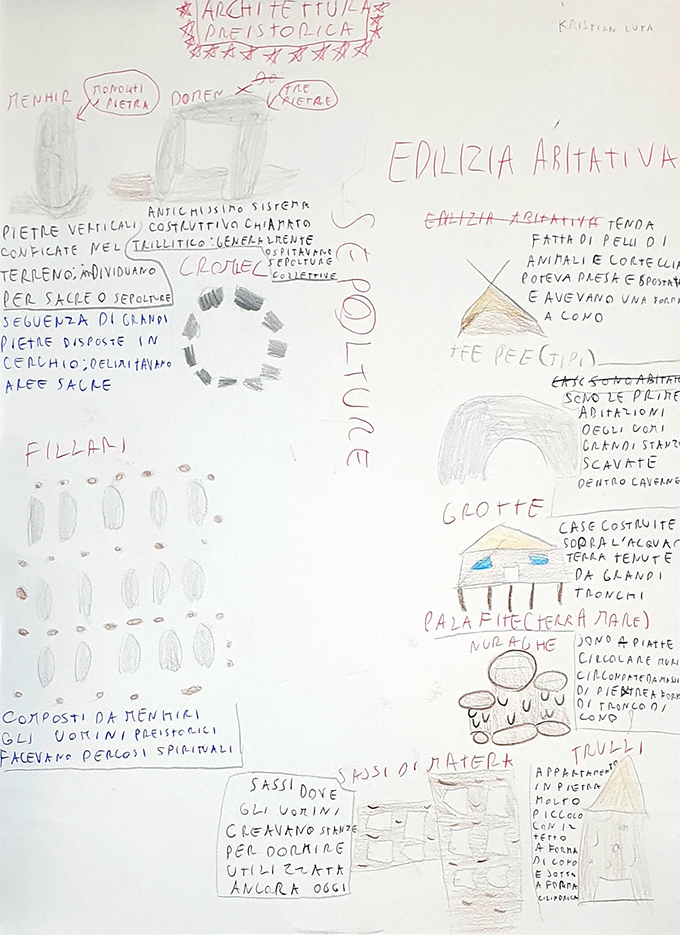 ARCHITETTURA
PREISTORICA
KRISTIAN LUTA
MENHIR
MONOLITI
PIETRA
DOMEN
TRE
PIETRE
PIETRE VERTICALI
CONFICATE NEL
TERRENO; iNDIVIDUANO
PER SACRE O SEPOLTURE
ANTICHISSIMO SISTEMA
COSTRUTTIVO CHIAMATO
TRILLITICO: GENERALMENTE
OSPITAVANO
SEPOLTURE
COLLETTIVE
CROMLEC
SEGUENZA DI GRANDI
PIETRE DISPOSTE IN
CERCHIO; DELIMITAVANO
AREE SACRE
SEPOLTURE
FILLARI
COMPOSTI DA MENHIRI
GLI UOMINI PREISTORICI
FACEVANO PERCOSI SPIRITUALI
EDILIZIA ABITATIVA
EDILIZIA ABITATIVA TENDA
FATTA DI PELLI DI
ANIMALI E CORTECCIA
POTEVA PRESA E SPOSTATA
E AVEVANO UNA FORMA
A CONO
TEE PEE (TIPI)
CASE SONO ABITAT
SONO LE PRIME
ABITAZIONI
DEGLI UOMI
GRANDI STANZE
SCAVATE
DENTRO CAVERNE
GROTTE
CASE COSTRUITE
SOPRA L'ACQUA
TERRA TENUTE
DA GRANDI
TRONCHI
PALAFITE (TERRA MARE)
NURAGHE
SONO A PIATTE
CIRCOLARE MURI
CIRCONDATE DA MASSI
DI PIETRE A FORMA
DI TRONCO DI
CONO
SASSI DI MATERA
SASSI DOVE
GLI UOMINI
CREAVANO STANZE
PER DORMIRE
UTILIZZATA
ANCORA OGGI
TRULLI
APPARTAMENTO
IN PIETRA
MOLTO
PICCOLO
CON IL
TETTO
A FORMA
DI CONO
E SOTTO
A FORMA
CILINDRICA